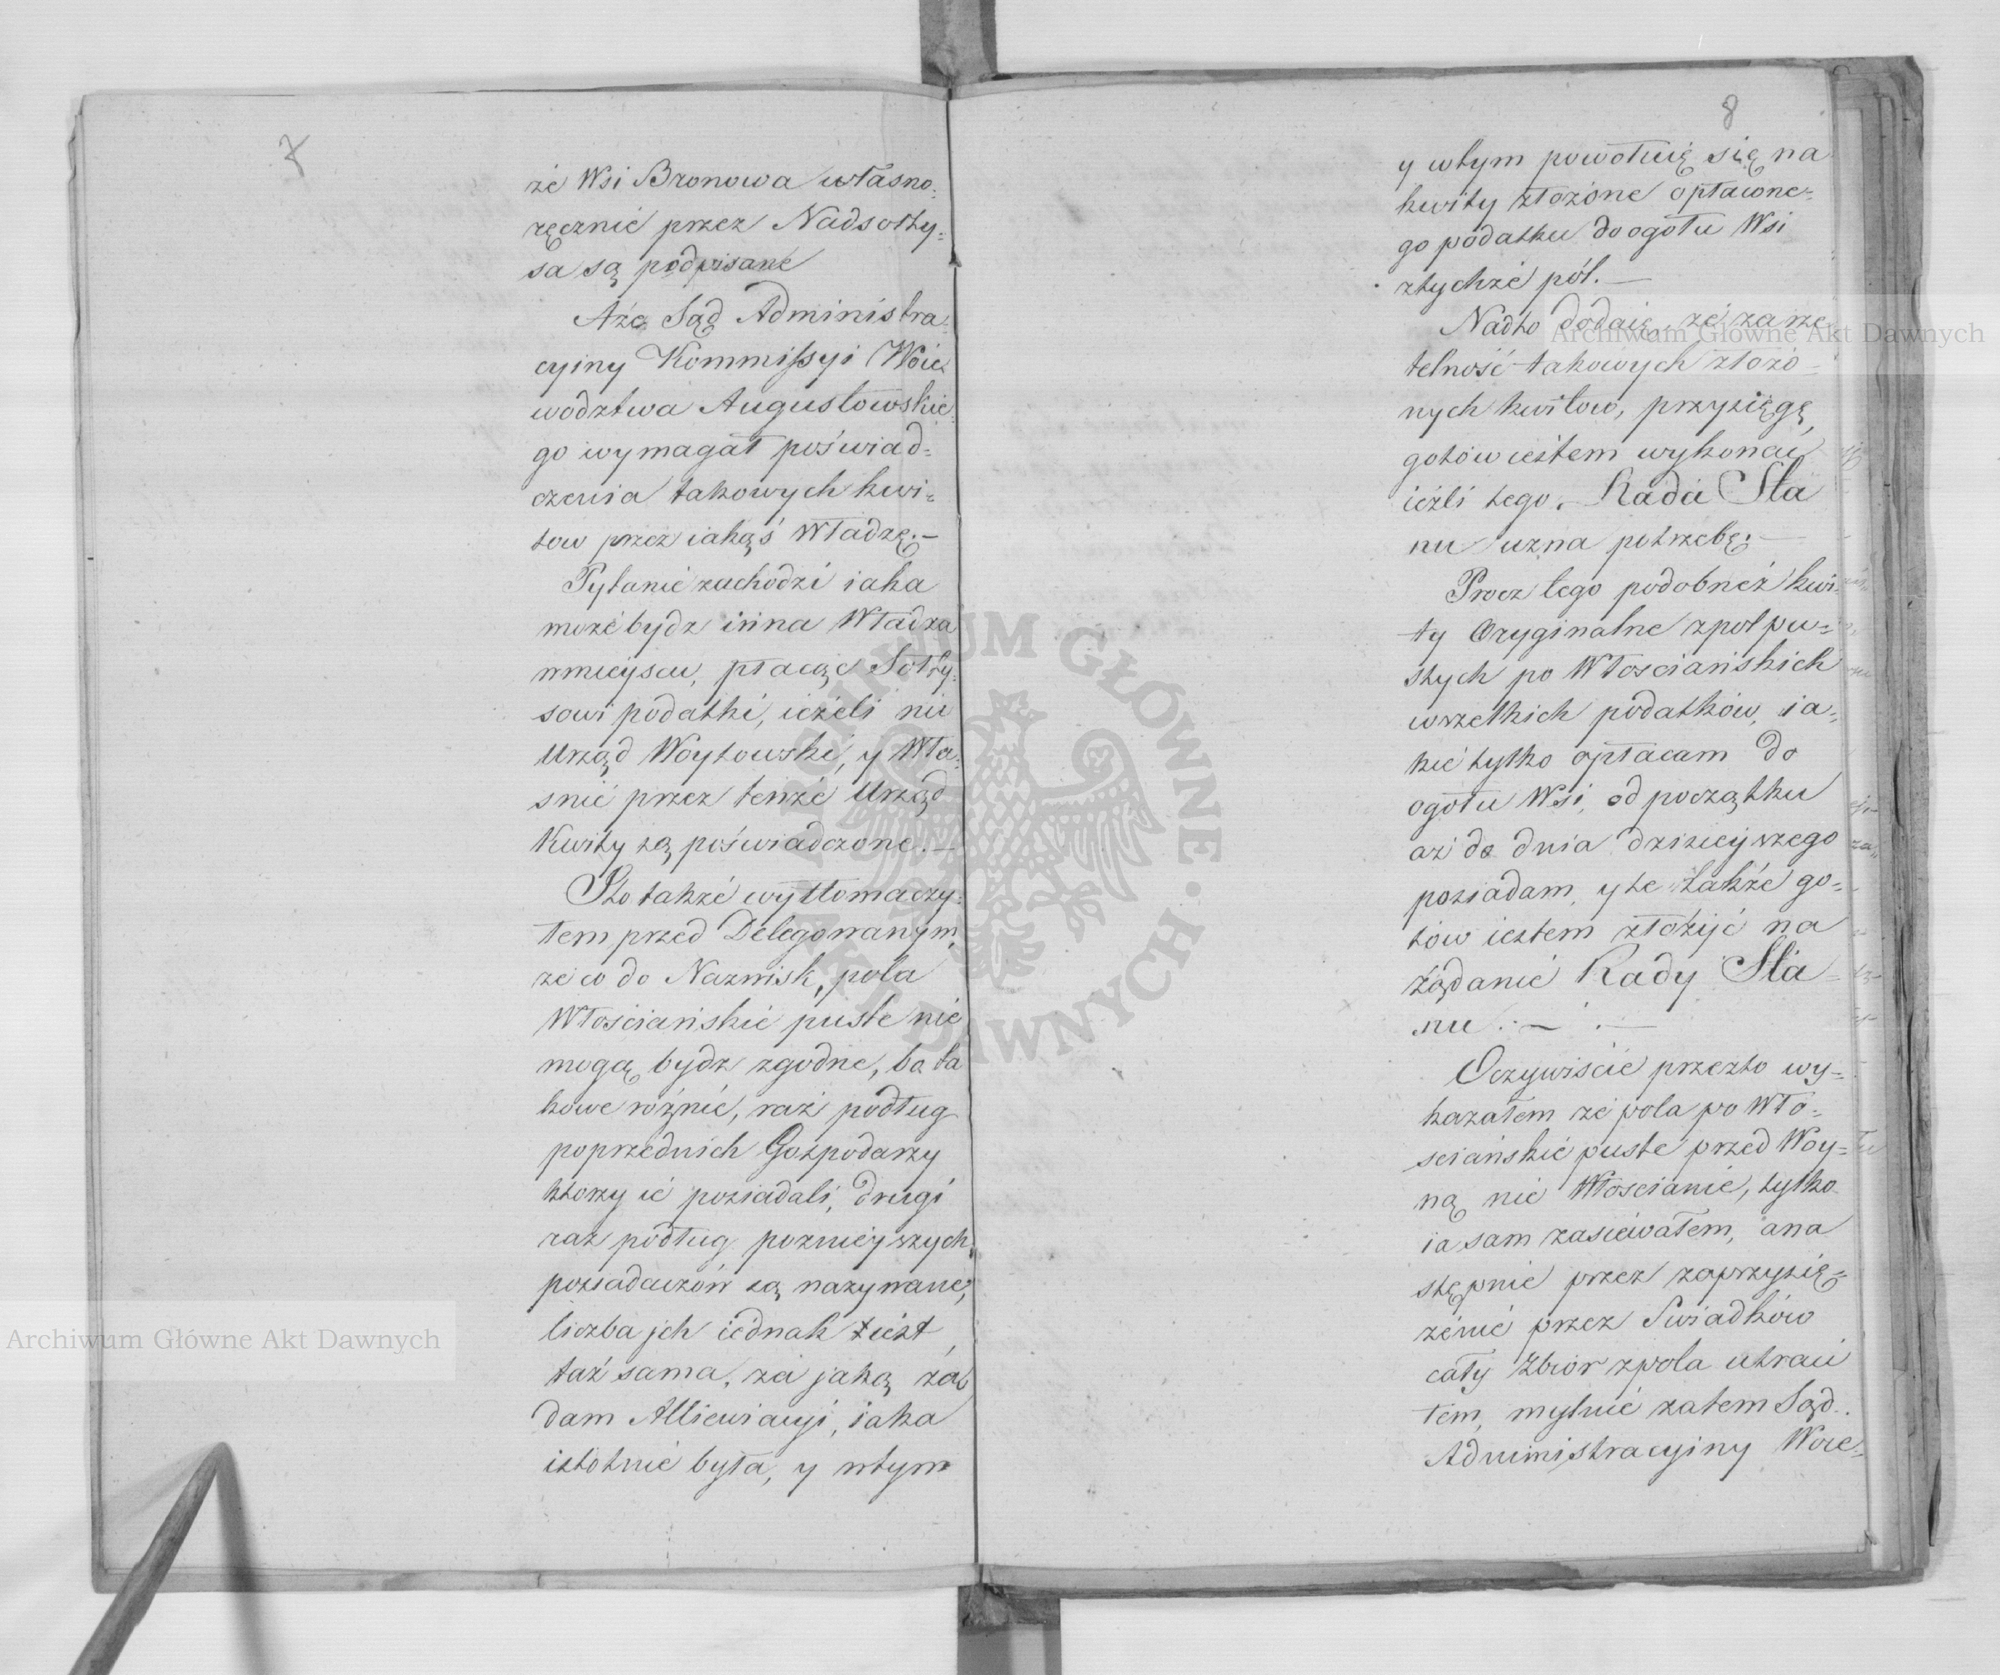 7
że Wsi Bronowa własno=
ręcznie przez Nadsołty=
sa są podpisane
Aże Sąd Administra=
cyiny Kommissyi Woie=
wodztwa Augustowskie=
go wymagał poświad=
czenia takowych kwi=
tow przez iakąś Władzę.—
Pytanie zachodzi iaka
może bydz inna Władza
wmieyscu, płacąc Sołty=
sowi podatki, ieżeli nie
Urząd Woytowski, y Wła=
snie przez tenże Urząd
Kwity są poświadczone.—
Sto także wytłomaczy=
łem przed Delegowanym,
że co do Nazwisk, pola
Włosciańskie puste nie
mogą bydz zgodne, bo ta
kowe rożnie, raz podług
poprzednich Gospodarzy
ktorzy ie posiadali, drugi
raz podług poznieyszych
posiadaczów są nazywane,
liczba jch iednak iest
taż sama, za jaką żą
dam Alliewiacyi, iaka
istotnie była, y wtym
8
y wtym powołuię się na
kwity złożone opłacone=
go podatku do ogołu Wsi
ztychże pól.—
Nadto dodaię, że za rze
telność takowych złożo=
nych kwitow, przysięgę
gotów iestem wykonać
ieżli tego. Rada Sta
nu uzna potrzebę.—
Procz tego podobneż kwi=
ty Oryginalne zpol pu=
stych po Włosciańskich
wszelkich podatków, ia=
kie tylko opłacam do
ogołu Wsi, od początku
aż do dnia dzisieyszego
posiadam, y te także go=
tów iestem złożyć na
żądanie Rady Sta=
nu.—
Oczywiście przezto wy=
kazałem że pola po Wło=
sciańskie puste przed Woy=
ną nie Włoscianie, tylko
ia sam zasiewałem, a na
stępnie przez zaprzysię=
żenie przez Swiadków
cały Zbior zpola utraci
łem, mylnie zatem Sąd
Administracyiny Woie=
Archiwum Główne Akt Dawnych
Archiwum Główne Akt Dawnych
ARCHIWUM GŁÓWNE AKT DAWNYCH